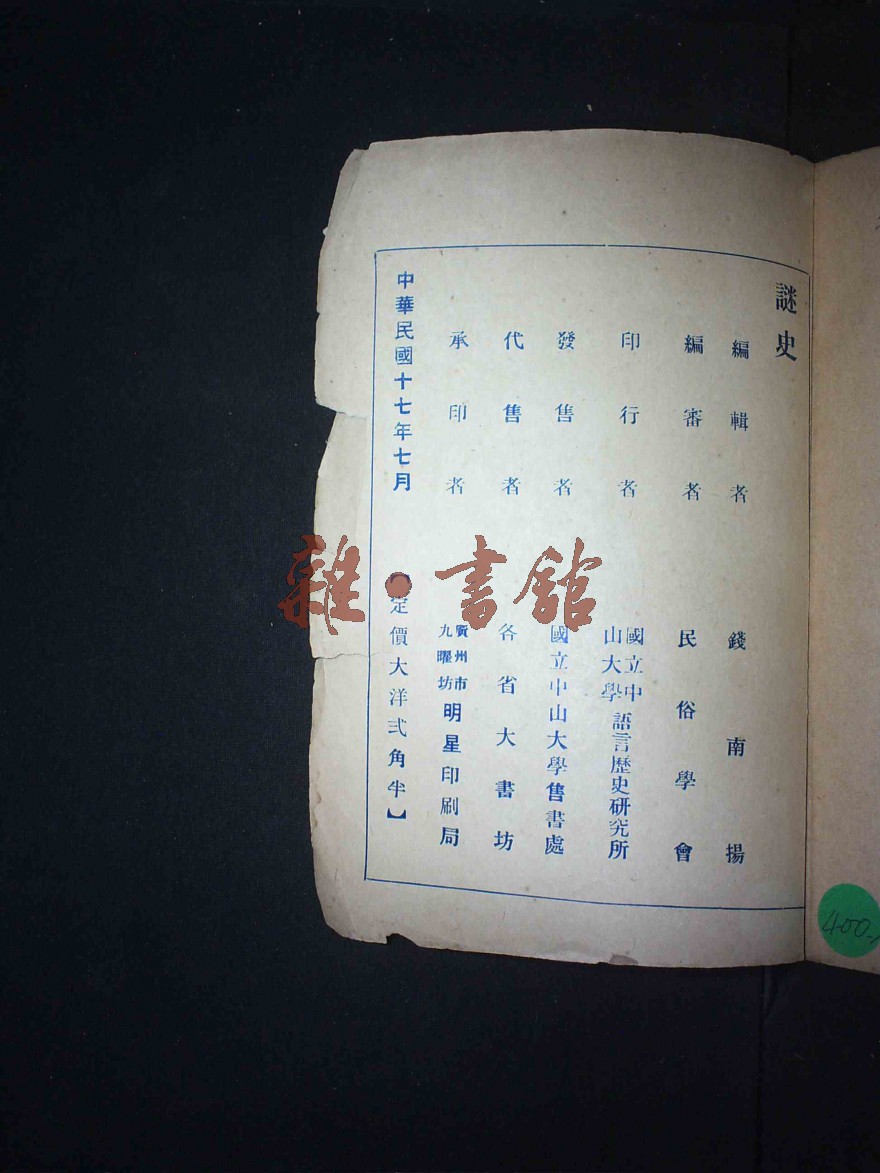 謎史
編輯者 錢南揚
編審者 民俗學會
印行者 國立中山大學語言歷史研究所
發售者 國立中山大學售書處
代售者 各省大書坊
承印者 廣州市九曜坊明星印刷局
中華民國十七年七月
定價大洋弍角半】
雜·書館
400